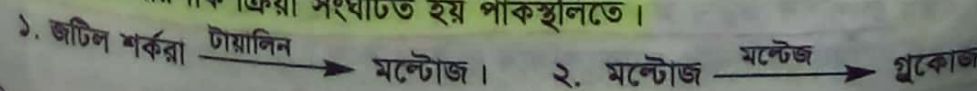 সংঘটিত হয় পাকস্থলিতে।
১. জটিল শর্করা টায়ালিন → মল্টোজ। ২. মল্টোজ মল্টেজ → গ্লুকোজ